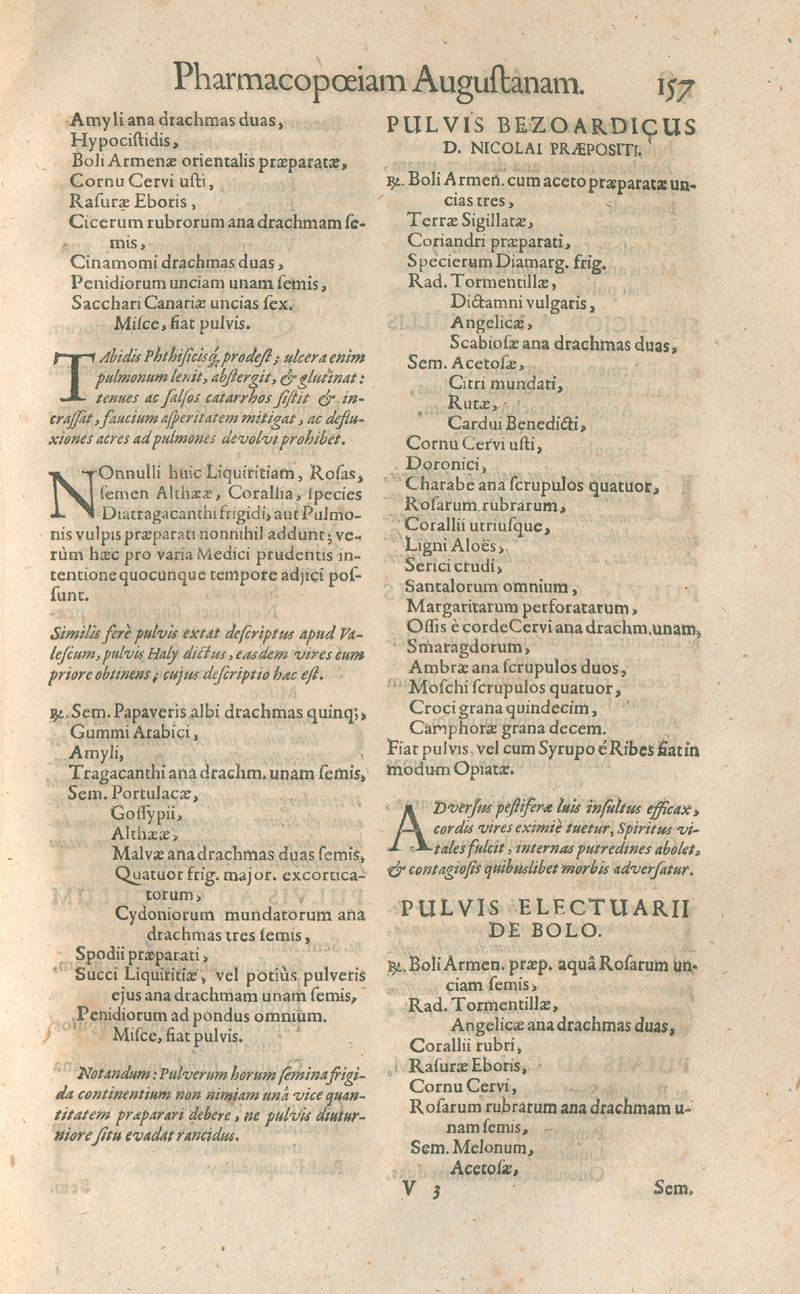 Pharmacopœiam Auguſtanam. 157
Amyli ana drachmas duas,
Hypociſtidis,
Boli Armenæ orientalis præparatæ,
Cornu Cervi uſti,
Raſuræ Eboris,
Cicerum rubrorum ana drachmam ſe-
mis,
Cinamomi drachmas duas,
Penidiorum unciam unam ſemis,
Sacchari Canariæ uncias ſex.
Miſce, fiat pulvis.
TAbidis Phthiſiciſq́; prodeſt; ulcera enim
pulmonum lenit, abſtergit, & glutinat:
tenues ac ſalſos catarrhos ſiſtit & in-
craſſat, faucium aſperitatem mitigat, ac deflu-
xiones acres ad pulmones devolvi prohibet.
NOnnulli huic Liquiritiam, Roſas,
ſemen Althææ, Corallia, ſpecies
Diatragacanthi frigidi, aut Pulmo-
nis vulpis præparati nonnihil addunt; ve-
rùm hæc pro varia Medici prudentis in-
tentione quocunque tempore adjici poſ-
ſunt.
Similis ferè pulvis extat deſcriptus apud Va-
leſcum, pulvis Haly dictus, easdem vires cum
priore obtinens; cujus deſcriptio hæc eſt.
℞. Sem. Papaveris albi drachmas quinq;,
Gummi Arabici,
Amyli,
Tragacanthi ana drachm. unam ſemis,
Sem. Portulacæ,
Goſſypii,
Althææ,
Malvæ ana drachmas duas ſemis,
Quatuor frig. major. excortica-
torum,
Cydoniorum mundatorum ana
drachmas tres ſemis,
Spodii præparati,
Succi Liquiritiæ, vel potiùs pulveris
ejus ana drachmam unam ſemis,
Penidiorum ad pondus omnium.
Miſce, fiat pulvis.
Notandum: Pulverum horum ſemina frigi-
da continentium non nimiam unâ vice quan-
titatem præparari debere, ne pulvis diutur-
niore ſitu evadat rancidus.
PULVIS BEZOARDICUS
D. NICOLAI PRÆPOSITI.
℞. Boli Armen. cum aceto præparatæ un-
cias tres,
Terræ Sigillatæ,
Coriandri præparati,
Specierum Diamarg. frig.
Rad. Tormentillæ,
Dictamni vulgaris,
Angelicæ,
Scabioſæ ana drachmas duas,
Sem. Acetoſæ,
Citri mundati,
Rutæ,
Cardui Benedicti,
Cornu Cervi uſti,
Doronici,
Charabe ana ſcrupulos quatuor,
Roſarum rubrarum,
Corallii utriuſque,
Ligni Aloës,
Serici crudi,
Santalorum omnium,
Margaritarum perforatarum,
Oſſis è corde Cervi ana drachm. unam,
Smaragdorum,
Ambræ ana ſcrupulos duos,
Moſchi ſcrupulos quatuor,
Croci grana quindecim,
Camphoræ grana decem.
Fiat pulvis, vel cum Syrupo é Ribes fiat in
modum Opiatæ.
ADverſus peſtiferæ luis inſultus efficax,
cordis vires eximiè tuetur, Spiritus vi-
tales fulcit, internas putredines abolet,
& contagioſis quibuslibet morbis adverſatur.
PULVIS ELECTUARII
DE BOLO.
℞. Boli Armen. præp. aquâ Roſarum un-
ciam ſemis,
Rad. Tormentillæ,
Angelicæ ana drachmas duas,
Corallii rubri,
Raſuræ Eboris,
Cornu Cervi,
Roſarum rubrarum ana drachmam u-
nam ſemis,
Sem. Melonum,
Acetoſæ,
V 3 Sem.